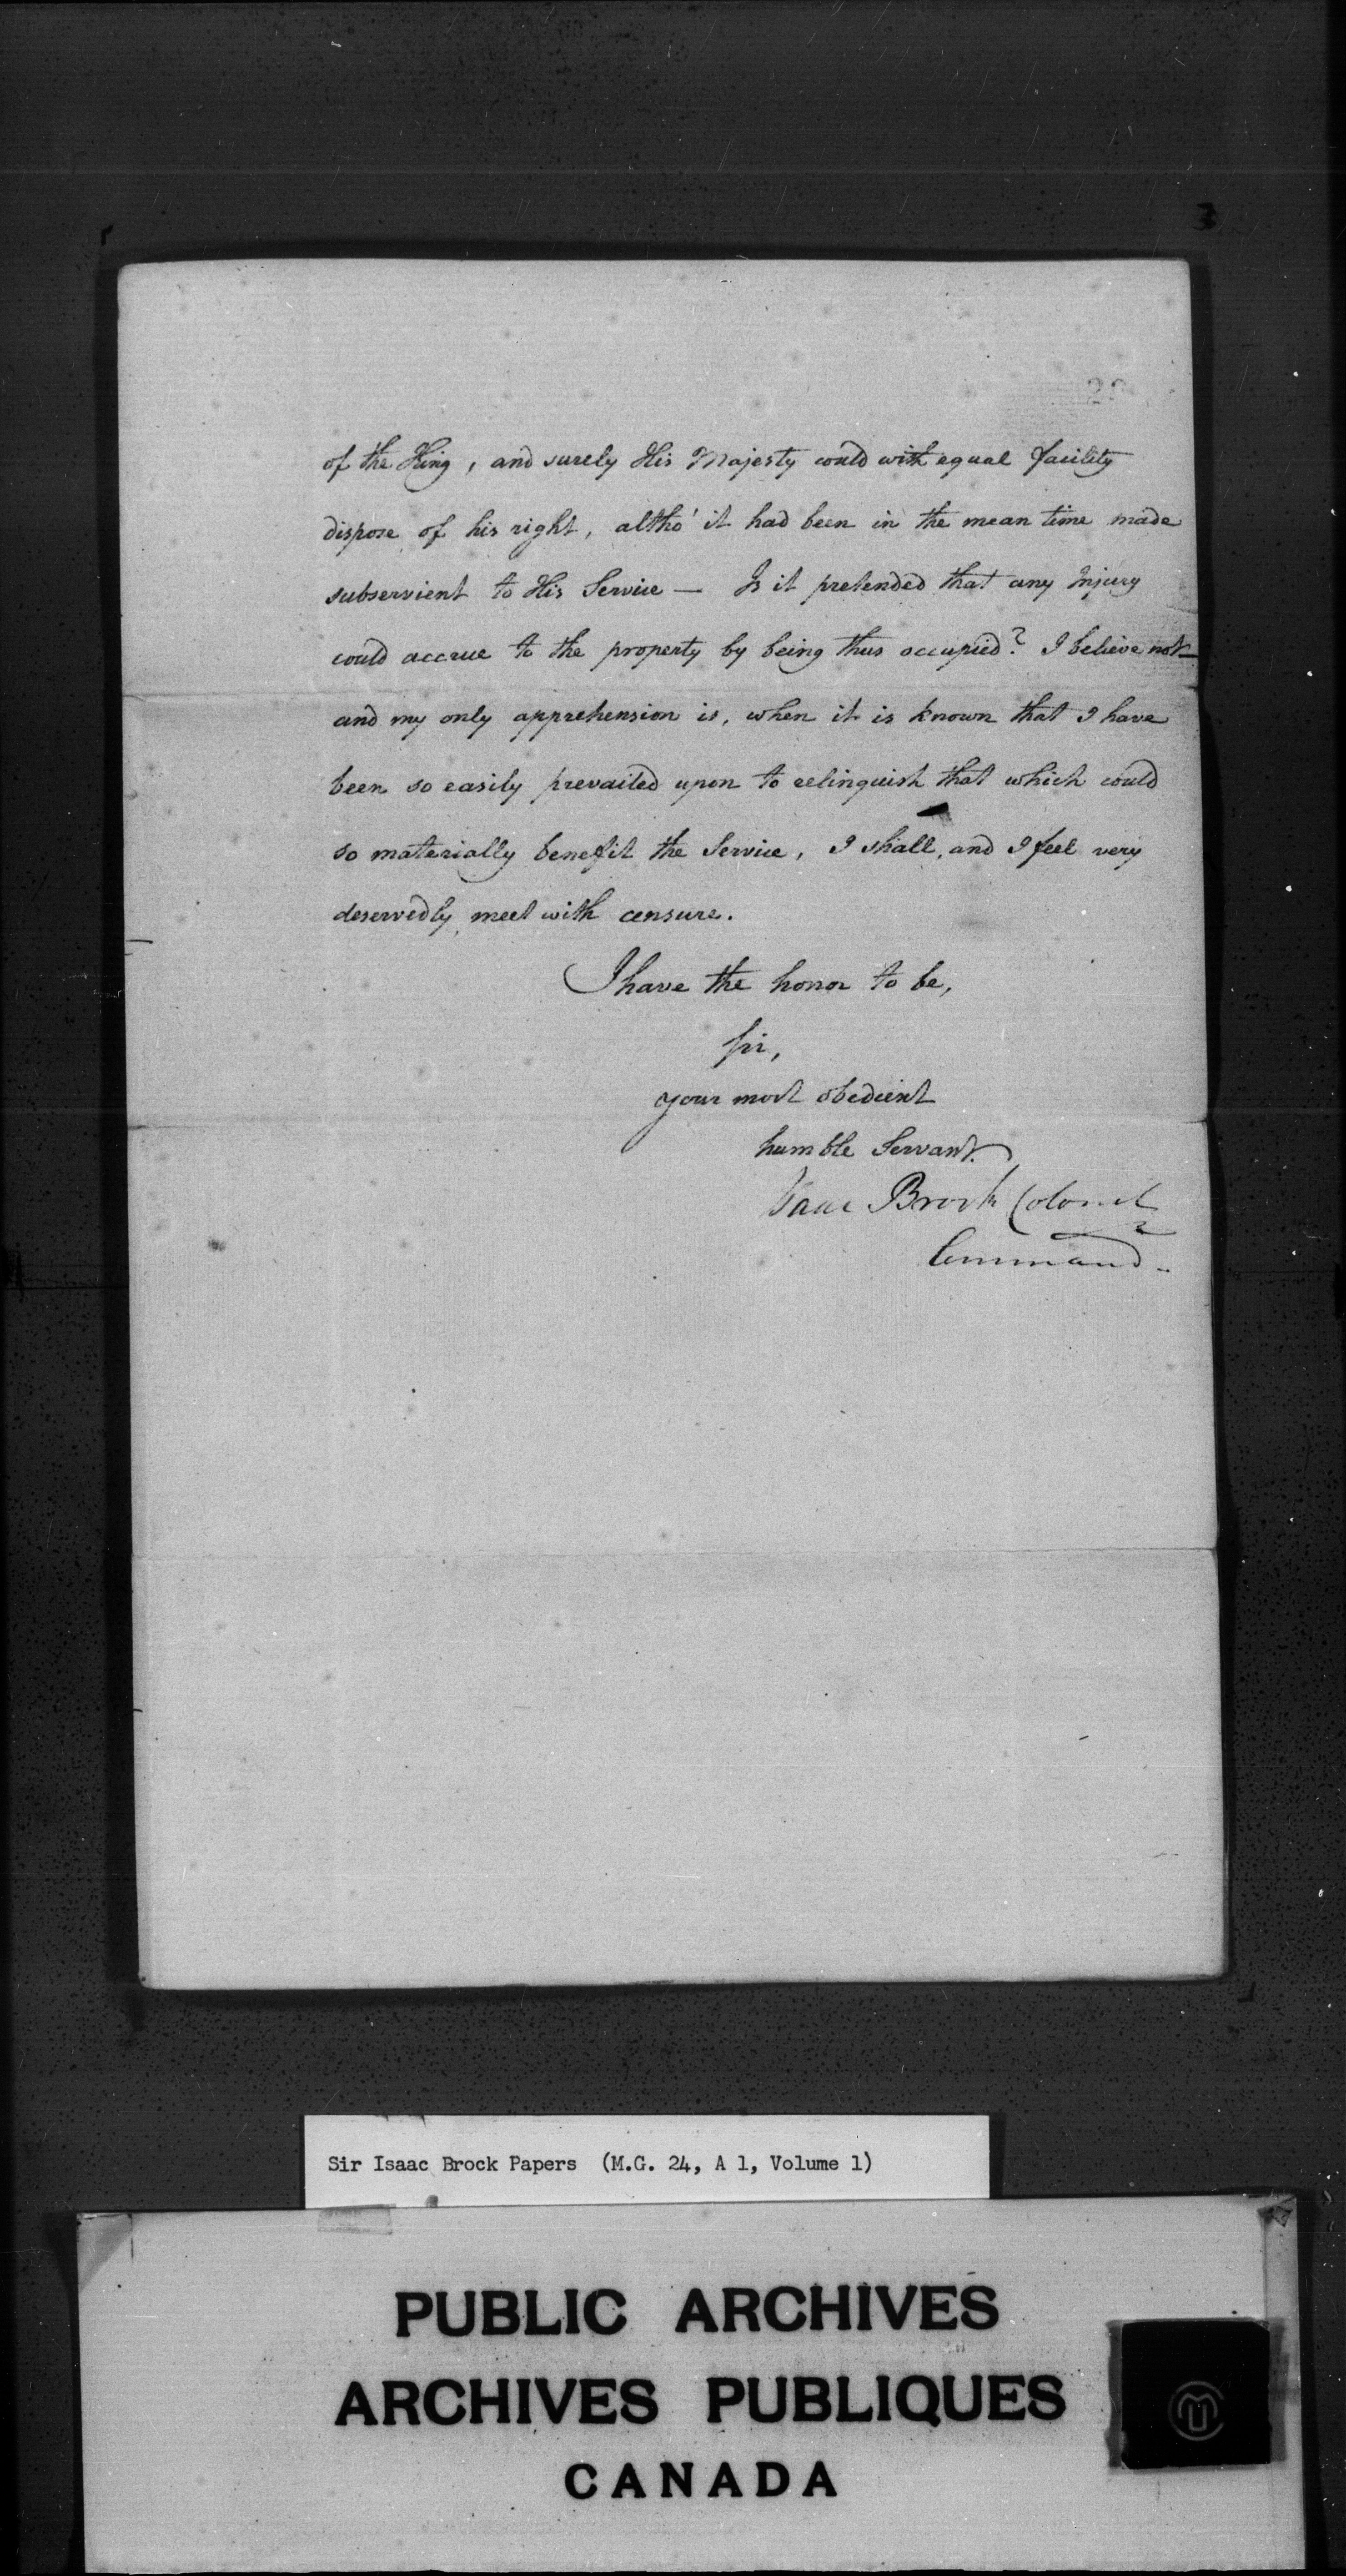 3
of the King, and surely His Majesty could with equal facility
dispose of his right, altho' it had been in the mean time made
subservient to His Service — Is it pretended that any Injury
could accrue to the property by being thus occupied? I believe not—
and my only apprehension is, when it is known that I have
been so easily prevailed upon to relinquish that which could
so materially benefit the Service, I shall, and I feel very
deservedly, meet with censure.
I have the honor to be,
Sir,
your most obedient
humble Servant.
Isaac Brock Colonel
Command.
Sir Isaac Brock Papers (M.G. 24, A 1, Volume 1)
PUBLIC ARCHIVES
ARCHIVES PUBLIQUES
CANADA